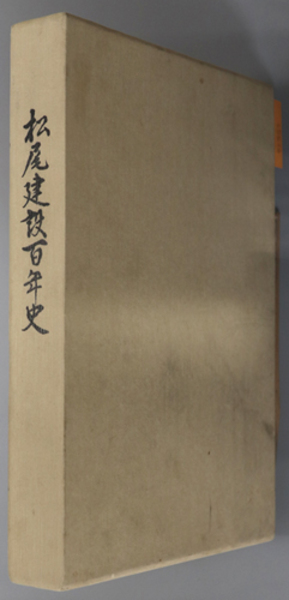 松尾建設百年史